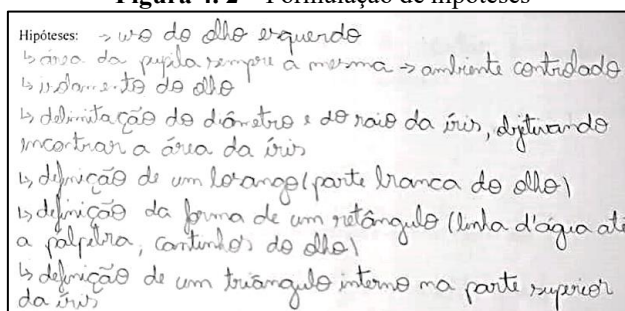 Figura 4. 2 – Formulação de hipóteses
Hipóteses: → uso do olho esquerdo
↳ área da pupila sempre a mesma → ambiente controlado
↳ isolamento do olho
↳ delimitação do diâmetro e do raio da íris, objetivando
encontrar a área da íris
↳ definição de um losango (parte branca do olho)
↳ definição da forma de um retângulo (linha d'água até
a palpebra, cantinhos do olho)
↳ definição de um triângulo interno na parte superior
da íris